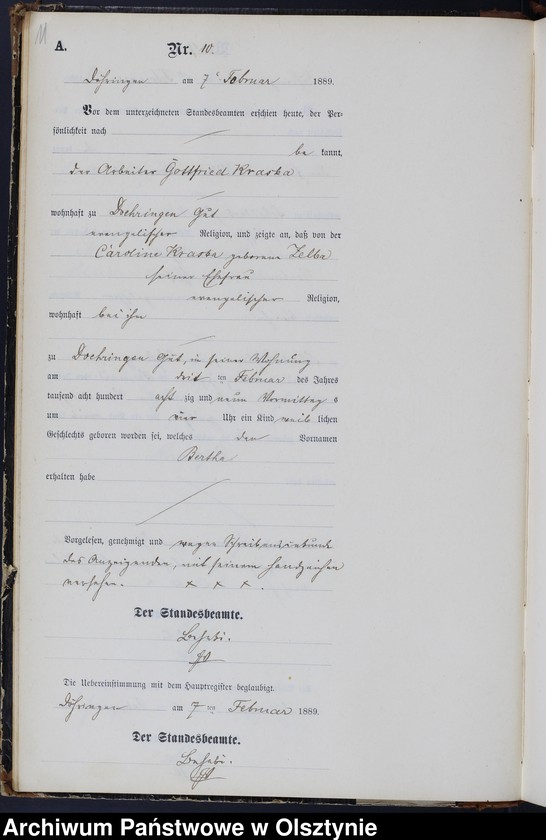 11
A.
Nr. 10.
Döhringen am 7ᵗ Februar 1889.
Vor dem unterzeichneten Standesbeamten erschien heute, der Per-
sönlichkeit nach
be kannt,
der Arbeiter Gottfried Kraska
wohnhaft zu Doehringen Gut
evangelischer Religion, und zeigte an, daß von der
Caroline Kraska geborene Zelba
seiner Ehefrau
evangelischer Religion,
wohnhaft bei ihm
zu Doehringen Gut, in seiner Wohnung
am drit ten Februar des Jahres
tausend acht hundert acht zig und neun Vormittag s
um vier Uhr ein Kind weib lichen
Geschlechts geboren worden sei, welches den Vornamen
Bertha
erhalten habe
Vorgelesen, genehmigt und wegen Schreibensunkunde
des Anzeigenden, mit seinem Handzeichen
versehen. x x x.
Der Standesbeamte.
Die Uebereinstimmung mit dem Hauptregister beglaubigt.
Döhringen am 7 ten Februar 1889.
Der Standesbeamte.
Archiwum Państwowe w Olsztynie